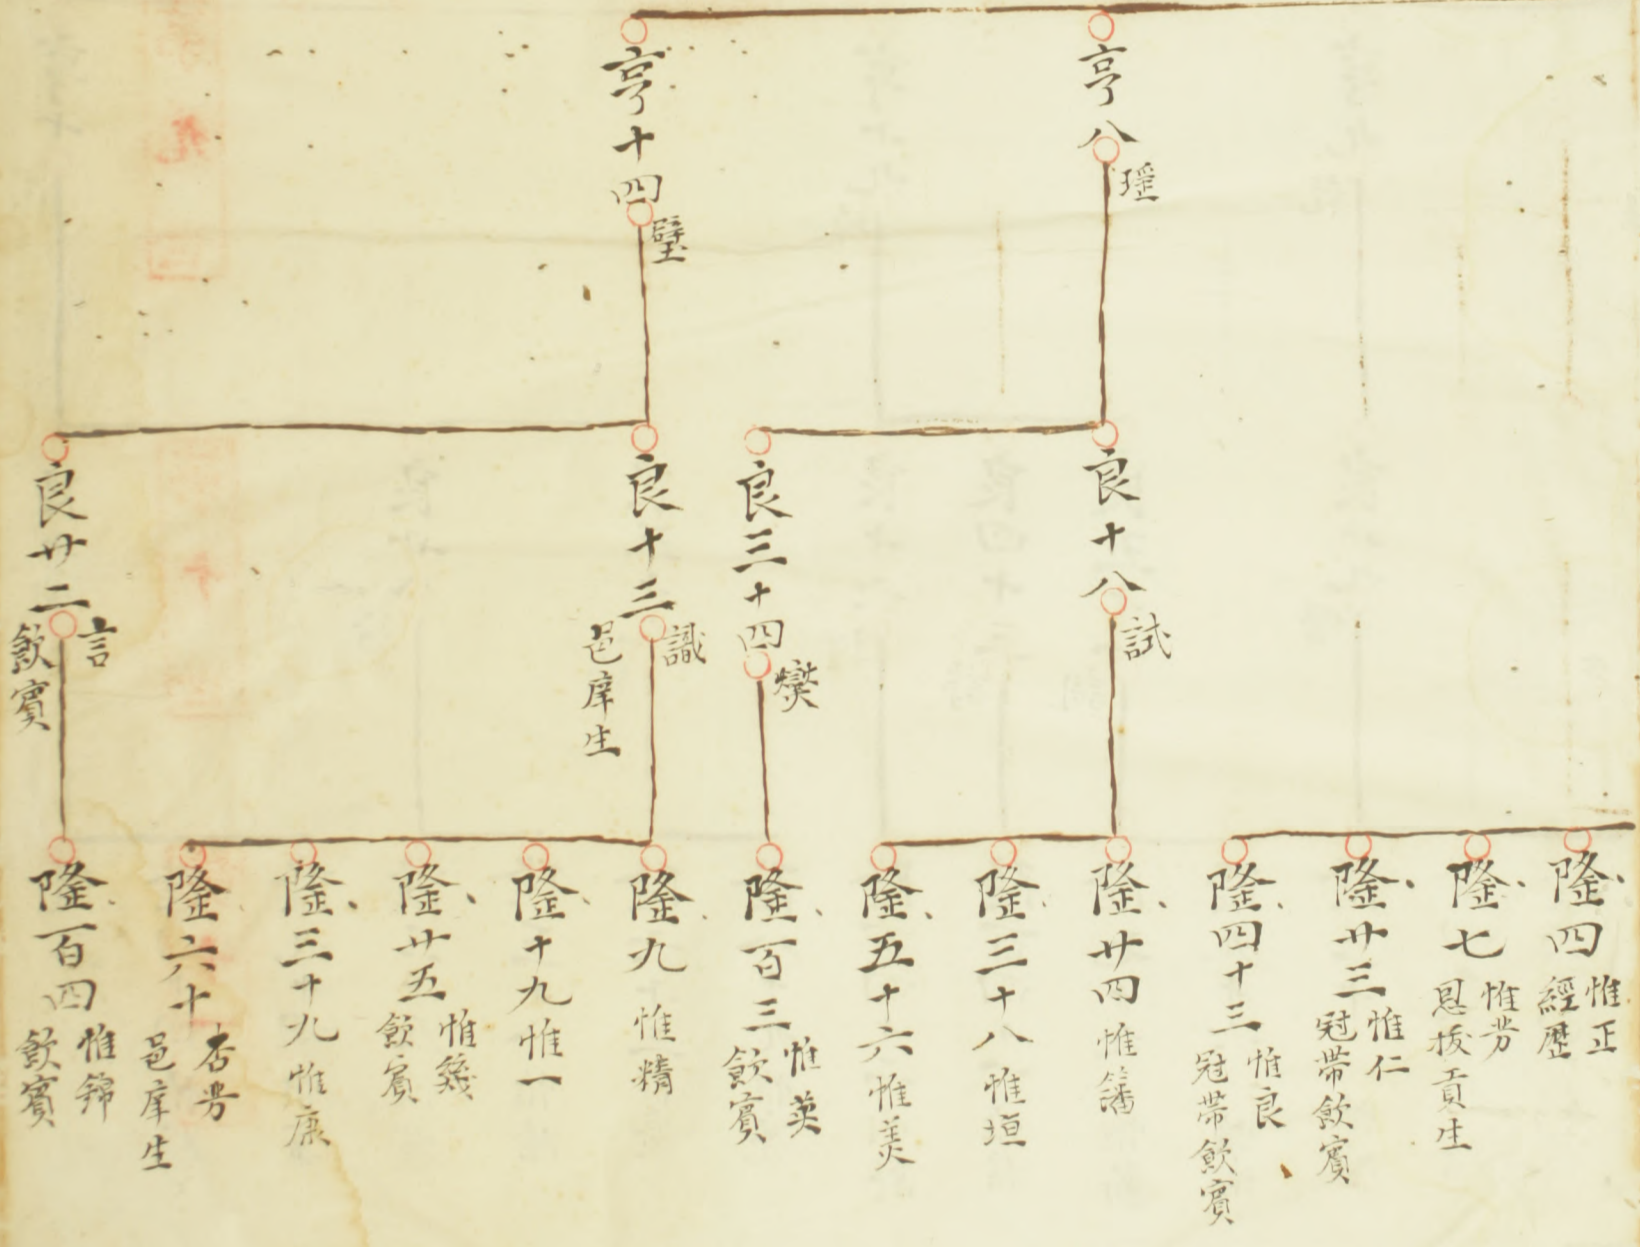 亨八
瑶
亨十四
璧
良十八
試
良三十四
爕
良十三
識
邑庠生
良廿二
言
飲賓
隆四
惟正
經歷
隆七
惟芳
恩拔貢生
隆廿三
惟仁
冠帶飲賓
隆四十三
惟良
冠帶飲賓
隆廿四
惟籓
隆三十八
惟垣
隆五十六
惟美
隆百三
惟英
飲賓
隆九
惟精
隆十九
惟一
隆廿五
惟幾
飲賓
隆三十九
惟康
隆六十
邑庠生
隆百四
惟錦
飲賓